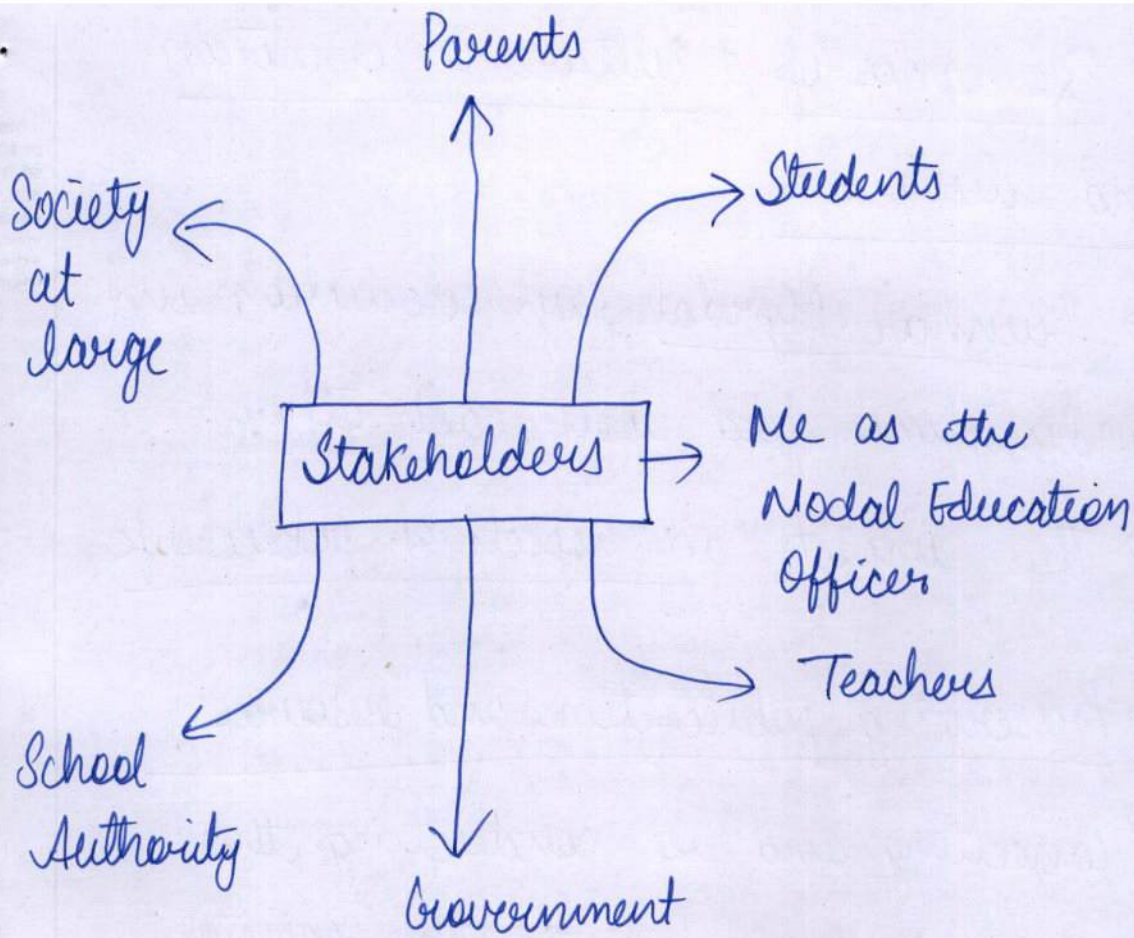 Parents
Students
Society
at
large
Stakeholders
Me as the
Nodal Education
Officer
Teachers
School
Authority
Government